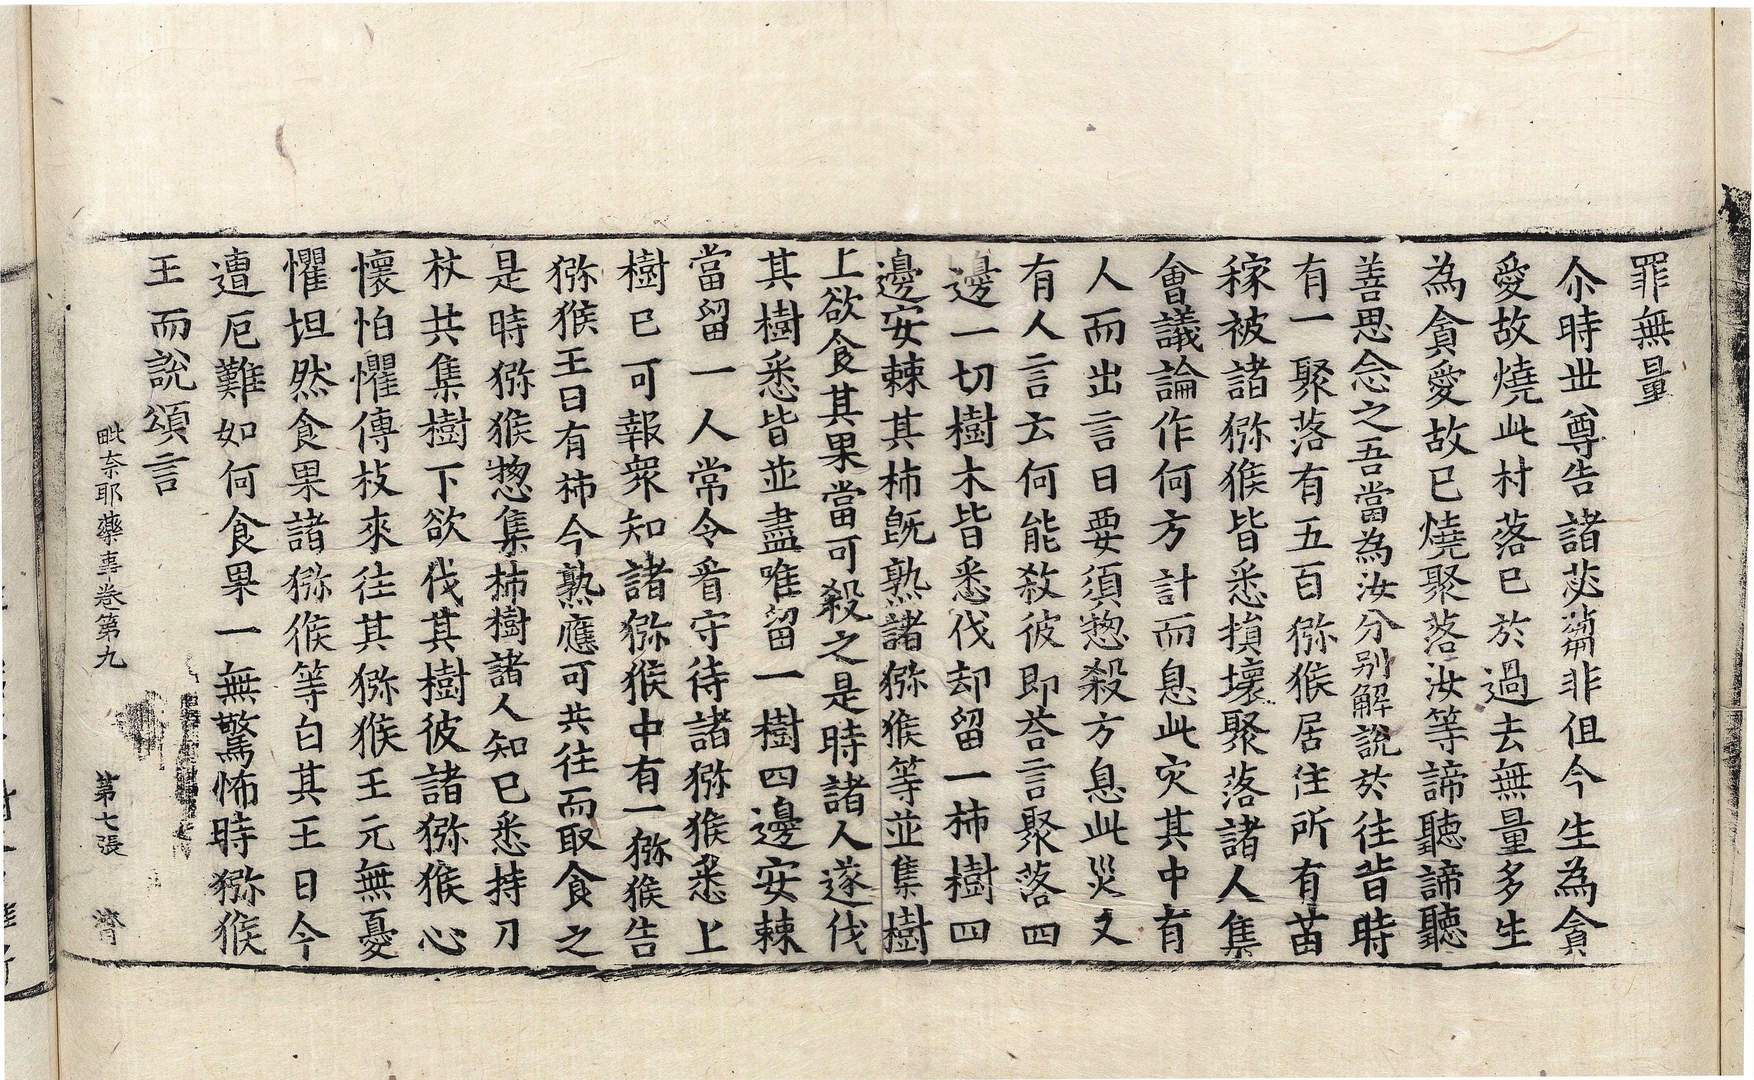 罪無量
尒時世尊告諸苾蒭非伹今生為貪
愛故燒此村落已於過去無量多生
為貪愛故已燒聚落汝等諦聽諦聽
善思念之吾當為汝分別解說於往昔時
有一聚落有五百猕猴居住所有苗
稼被諸猕猴皆悉損壞聚落諸人集
會議論作何方計而息此灾其中有
人而出言曰要須惣殺方息此災又
有人言云何能煞彼即荅言聚落四
邊一切樹木皆悉伐却留一柿樹四
邊安棘其柿旣熟諸猕猴等並集樹
上欲食其果當可殺之是時諸人遂伐
其樹悉皆並盡唯留一樹四邊安棘
當留一人常令看守待諸猕猴悉上
樹已可報衆知諸猕猴中有一猕猴告
猕猴王曰有柿今熟應可共往而取食之
是時猕猴惣集柿樹諸人知已悉持刀
杖共集樹下欲伐其樹彼諸猕猴心
懷怕懼傳枝來往其猕猴王元無憂
懼坦然食果諸猕猴等白其王曰今
遭厄難如何食果一無驚怖時猕猴
王而說頌言
毗奈耶藥事卷第九 第七張 濟